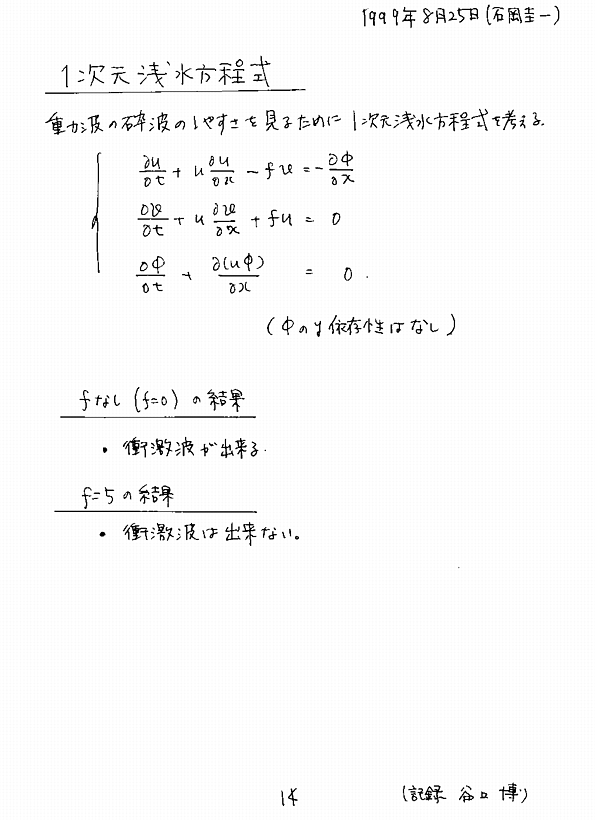 1999年8月25日(石岡圭一)
1次元浅水方程式
重力波の砕波のしやすさを見るために1次元浅水方程式を考える.
∂u/∂t + u ∂u/∂x - fv = -∂Φ/∂x
∂v/∂t + u ∂v/∂x + fu = 0
∂Φ/∂t + ∂(uΦ)/∂x = 0.
(Φのy依存性はなし)
fなし(f=0)の結果
・衝激波が出来る.
f=5の結果
・衝激波は出来ない。
14
(記録 谷口 博)